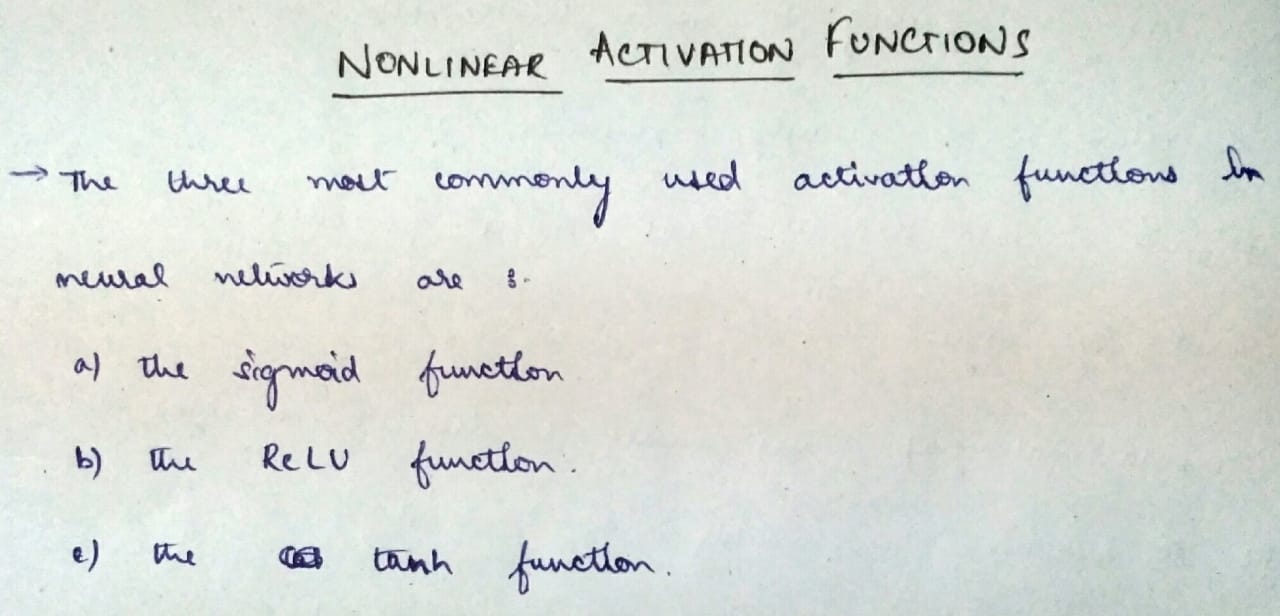 NONLINEAR ACTIVATION FUNCTIONS
→ The three most commonly used activation functions in
neural networks are :-
a) the sigmoid function
b) the ReLU function.
c) the tanh function.